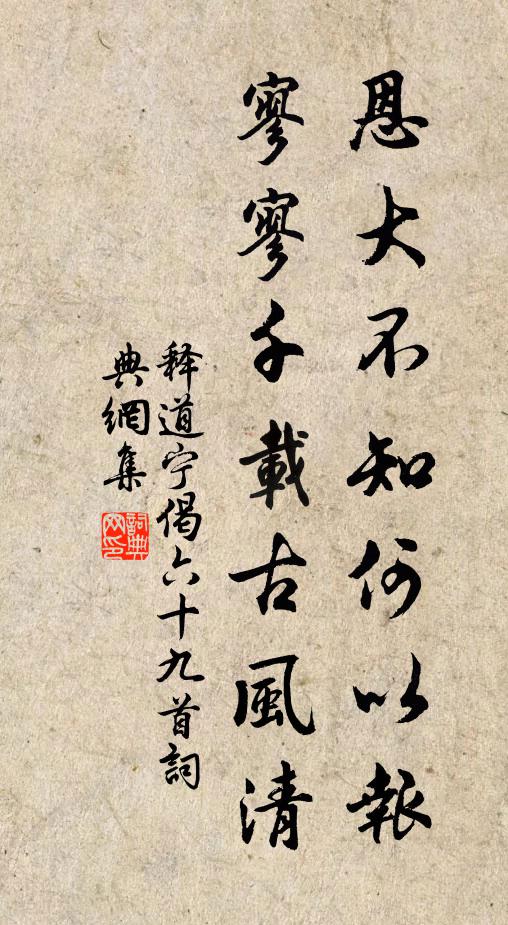 恩大不知何以報
寥寥千載古風清
释道宁偈六十九首詞
典網集
詞典
网印